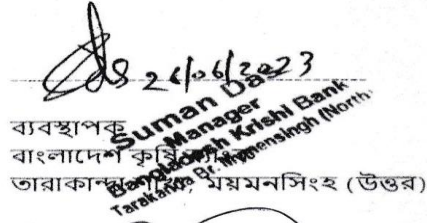 26/06/2023
ব্যবস্থাপক
বাংলাদেশ কৃষি
তারাকান্দা শাখা, ময়মনসিংহ (উত্তর)
Suman Das
Manager
Bangladesh Krishi Bank
Tarakanda Br. Mymensingh (North)